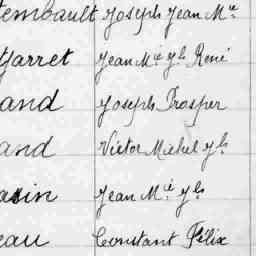 embault Joseph Jean Mie
Jarret Jean Mie Jh René
and Joseph Prosper
and Victor Michel Jh
asin Jean Mie Jh
eau Constant Félix